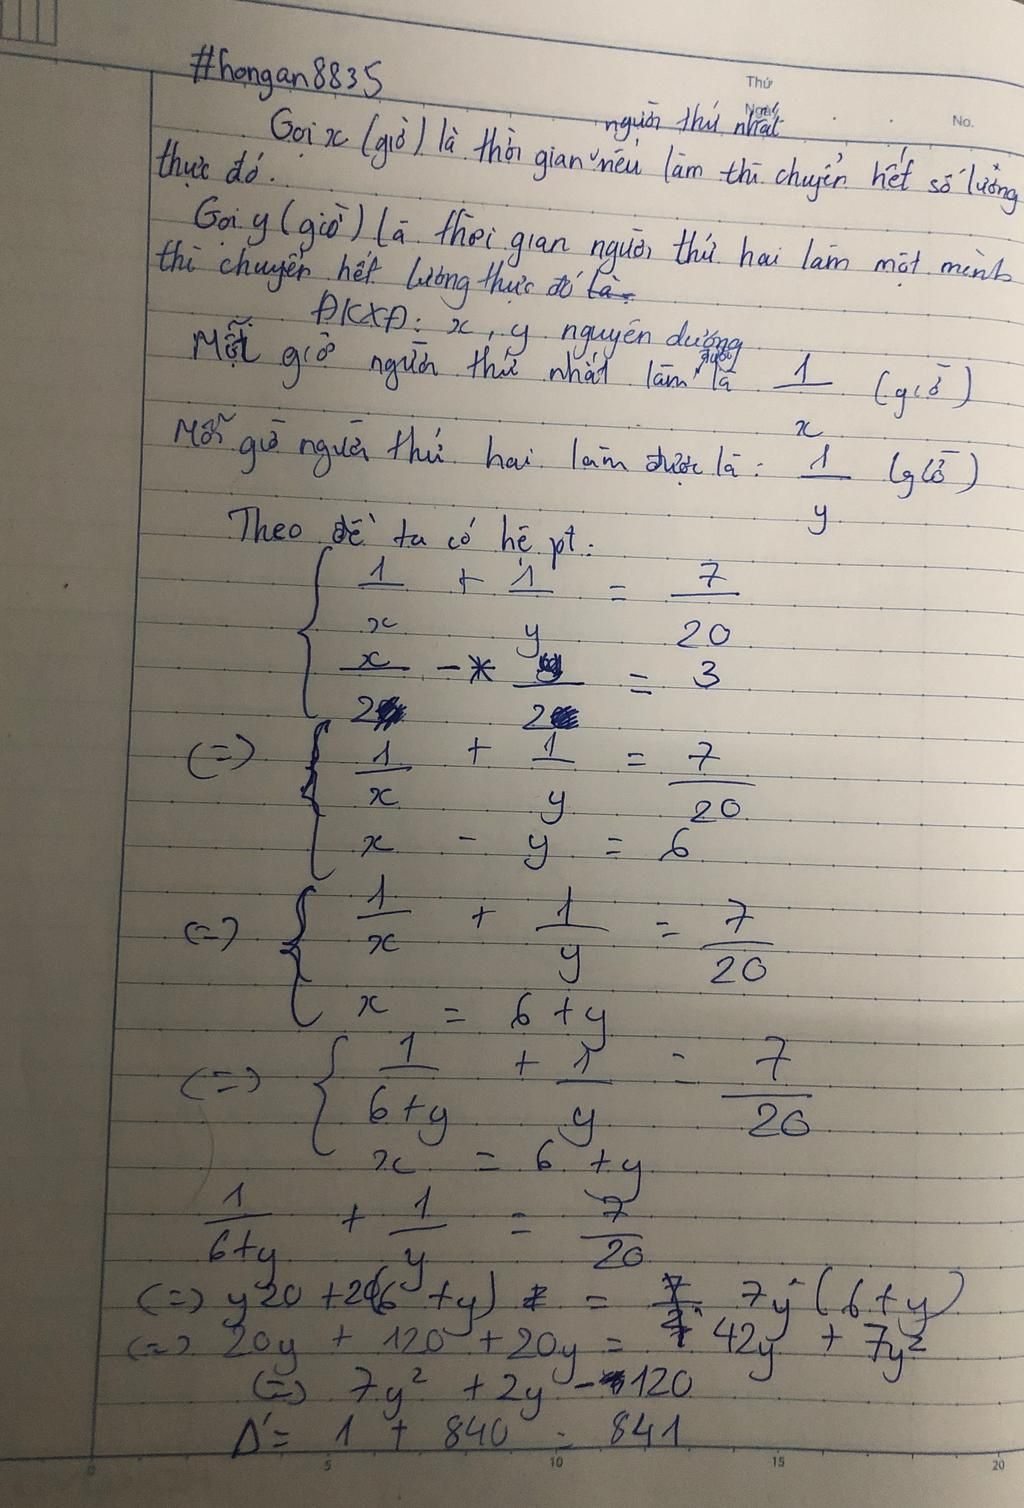 #hongan8835
Thứ
Ngày
No.
người thứ nhất
Gọi x (giờ) là thời gian nếu làm thì chuyển hết số lương
thực đó.
Gọi y (giờ) là thời gian người thứ hai làm một mình
thì chuyển hết lương thực đó là
ĐKXĐ: x, y nguyên dương
Mỗi giờ người thứ nhất làm được là 1/x (giờ)
Mỗi giờ người thứ hai làm được là: 1/y (giờ)
Theo đề ta có hệ pt:
1/x + 1/y = 7/20
x/2 - y/2 = 3
(=) 1/x + 1/y = 7/20
x - y = 6
(=) 1/x + 1/y = 7/20
x = 6 + y
(=) 1/(6+y) + 1/y = 7/20
x = 6 + y
1/(6+y) + 1/y = 7/20
(=) y20 + 20(6 + y) = 7y (6 + y)
(=) 20y + 120 + 20y = 42y + 7y²
(=) 7y² + 2y - 120
Δ' = 1 + 840 = 841
0 5 10 15 20